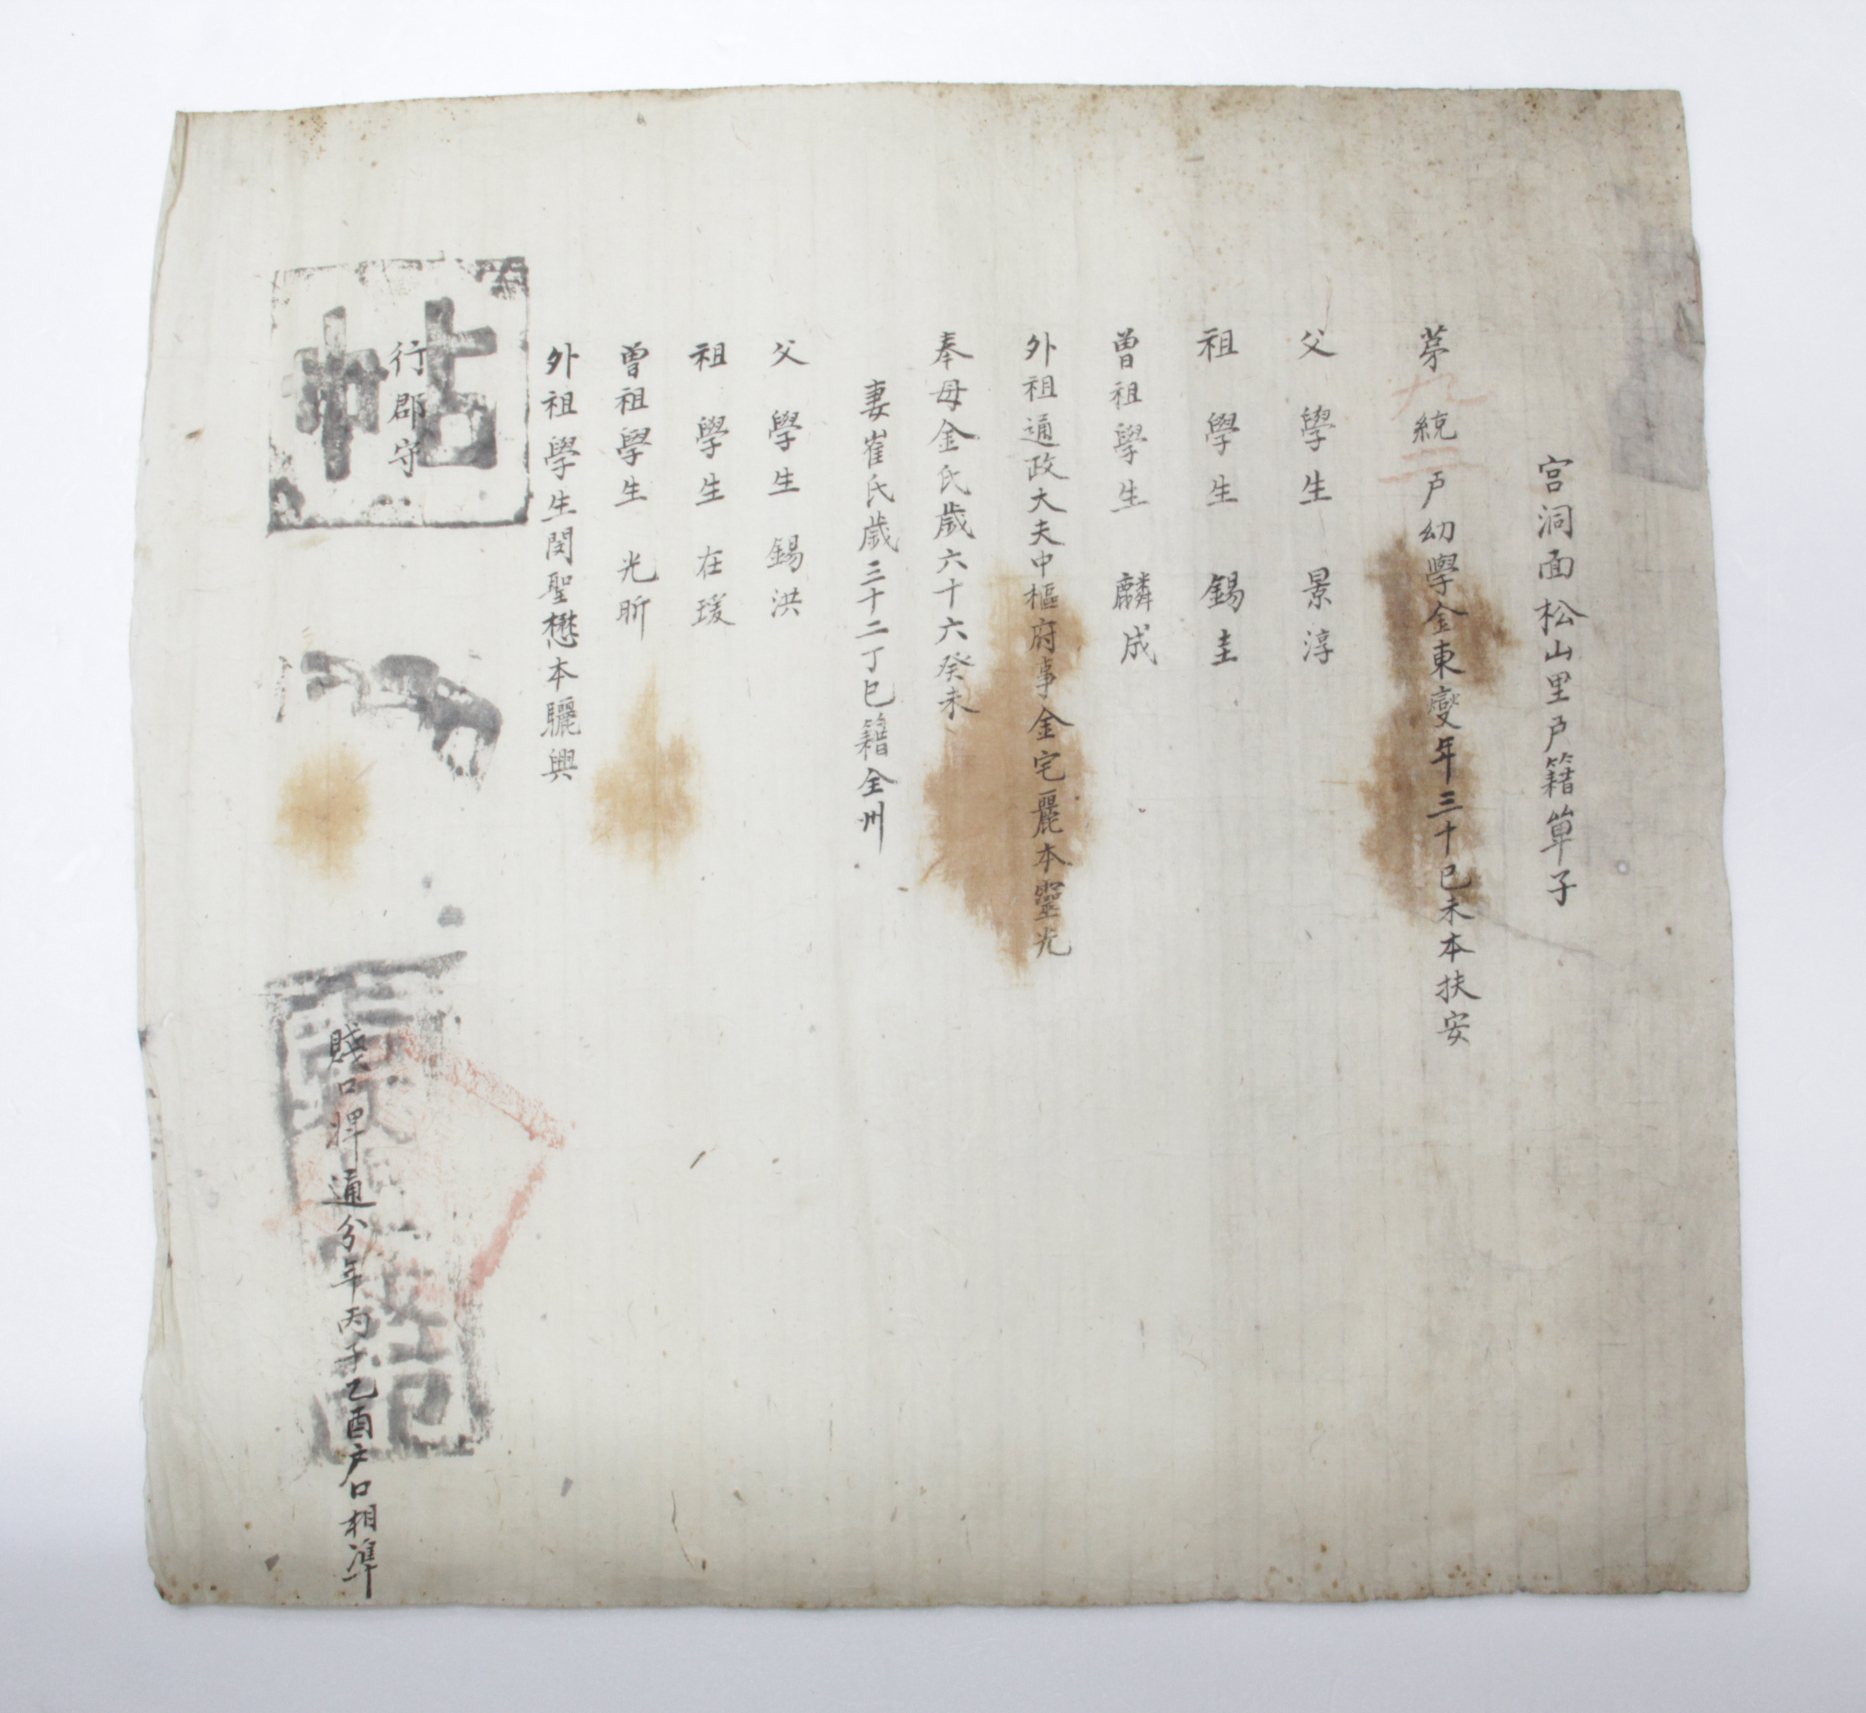 宮洞面松山里戶籍單子
茅九統二戶幼學金東燮年三十己未本扶安
父學生景淳
祖學生錫圭
曾祖學生麟成
外祖通政大夫中樞府事金宅麗本靈光
奉母金氏歲六十六癸未
妻崔氏歲三十二丁巳籍全州
父學生錫洪
祖學生在瑗
曾祖學生光昕
外祖學生閔聖懋本驪興
行郡守
帖
賤口婢通分年丙子乙酉戶口相準